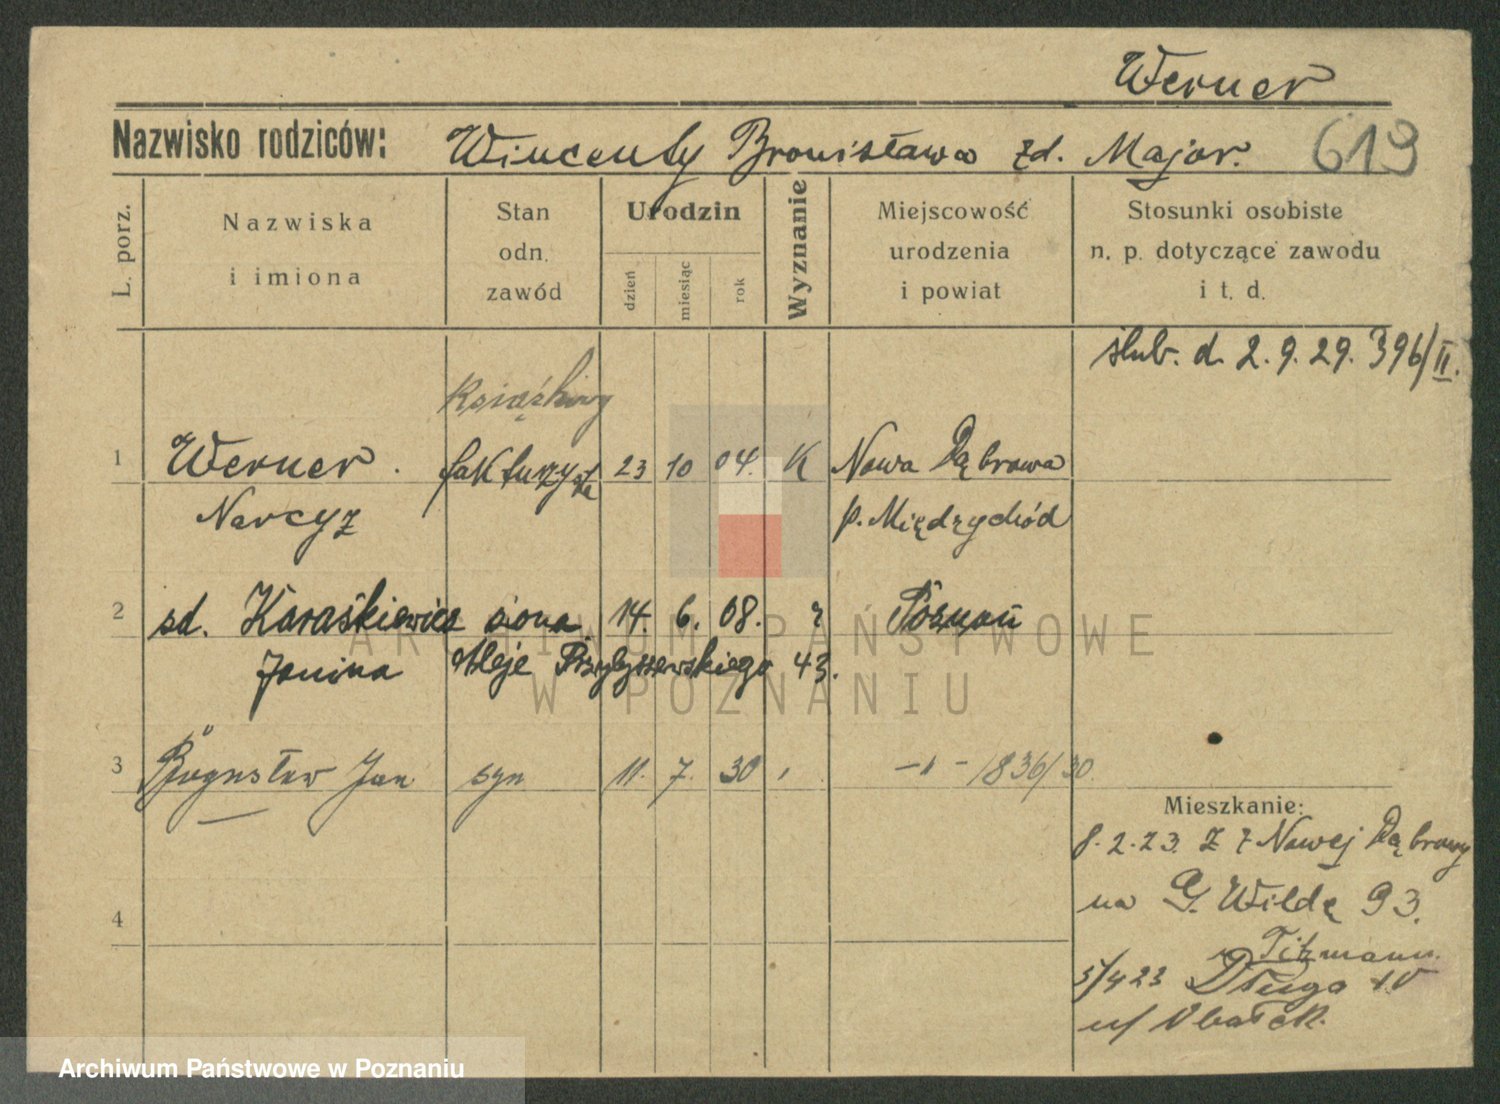 Werner
Nazwisko rodziców: Wincenty Bronisława zd. Major. 619
L. porz.
Nazwiska
i imiona
Stan
odn.
zawód
Urodzin
dzień
miesiąc
rok
Wyznanie
Miejscowość
urodzenia
i powiat
Stosunki osobiste
n. p. dotyczące zawodu
i t. d.
ślub. d. 2. 9. 29. 396/II.
1 Werner. fakturzysta 23 10 04. K Nowa Dąbrowa
Narcyz p. Międzychód
2 zd. Karaśkiewicz żona 14. 6. 08. Poznań
Janina Aleje Przybyszewskiego 43.
3 Bogusław Jan syn 11. 7. 30 -"- 1836/30
Mieszkanie:
8. 2. 23. Z Nowej Dąbrowy
na G. Wildę 93.
Titzmann.
5/4 23 Długa
u/
4
ARCHIWUM PAŃSTWOWE
W POZNANIU
Archiwum Państwowe w Poznaniu